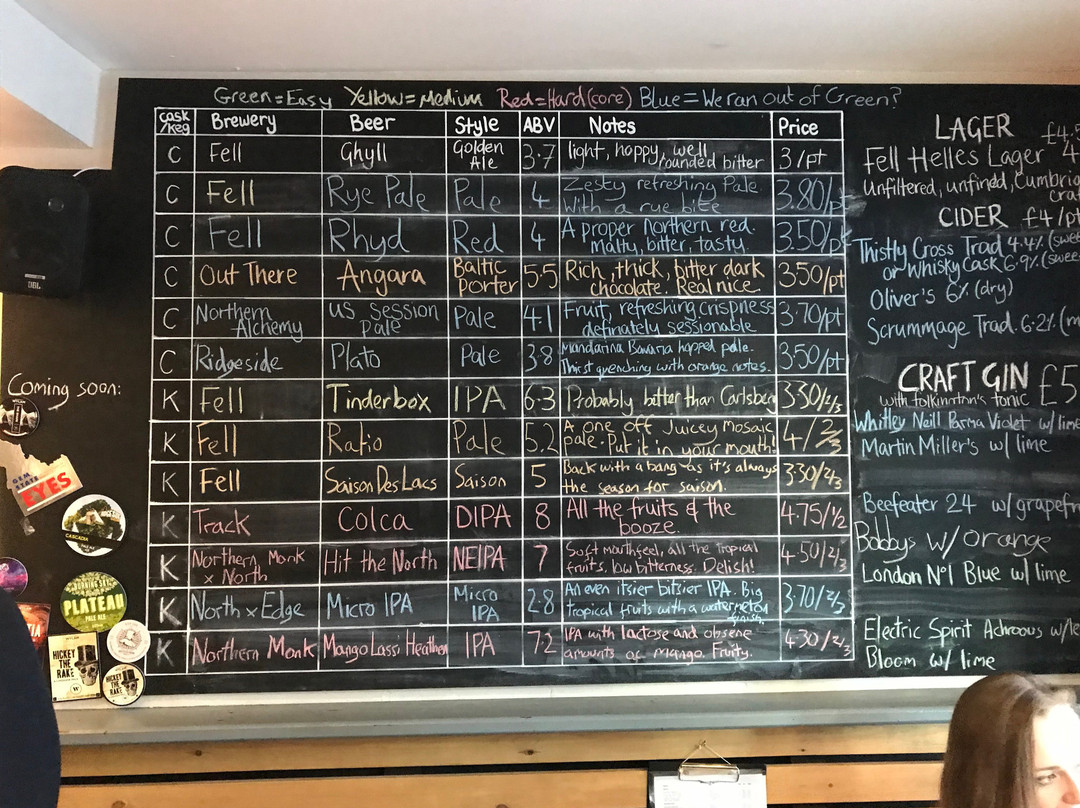 Green=Easy Yellow=Medium Red=Hard(core) Blue=We ran out of Green?
Cask/Keg Brewery Beer Style ABV Notes Price
C Fell Ghyll Golden Ale 3.7 light, hoppy, well rounded bitter 3/pt
C Fell Rye Pale Pale 4 Zesty refreshing Pale. With a rye bite 3.80/pt
C Fell Rhyd Red 4 A proper northern red. malty, bitter, tasty. 3.50/pt
C Out There Angara Baltic Porter 5.5 Rich, thick, bitter dark chocolate. Real nice 350/pt
C Northern Alchemy US Session Pale Pale 4.1 Fruit, refreshing crispness definately sessionable 3.70/pt
C Ridgeside Plato Pale 3.8 Mandarina Bavaria hopped pale. Thirst quenching with orange notes. 3.50/pt
K Fell Tinderbox IPA 6.3 Probably bitter than Carlsberg 330/2/3
K Fell Ratio Pale 5.2 A one off Juicey Mosaic pale. Put it in your mouth! 4/2/3
K Fell Saison Des Lacs Saison 5 Back with a bang as it's always the season for saison. 330/2/3
K Track Colca DIPA 8 All the fruits & the booze. 4.75/1/2
K Northern Monk x North Hit the North NEIPA 7 Soft mouthfeel, all the tropical fruits, low bitterness. Delish! 4.50/2/3
K North x Edge Micro IPA Micro IPA 2.8 An even itsier bitsier IPA. Big tropical fruits with a watermelon finish. 370/2/3
K Northern Monk Mango Lassi Heathen IPA 7.2 IPA with lactose and obsene amounts of mango. Fruity. 430/2/3
LAGER £4.
Fell Helles Lager 4
Unfiltered, unfined, Cumbria
CIDER £4/pt
Thistly Cross Trad 4.4% (swee
or Whisky Cask 6.9% (swee
Oliver's 6% (dry)
Scrummage Trad. 6.2% (m
CRAFT GIN £5
with folkington's tonic
Whitley Neill Parma Violet w/ lime
Martin Miller's w/ lime
Beefeater 24 w/ grapefr
Bobbys w/ orange
London No1 Blue w/ lime
Electric Spirit Achroous w/
Bloom w/ lime
Coming soon:
GEM STATE
EYES
CASCADIA
BURNING SKY
PLATEAU
PALE ALE
HICKEY
THE
RAKE
HICKEY
THE
RAKE
JBL